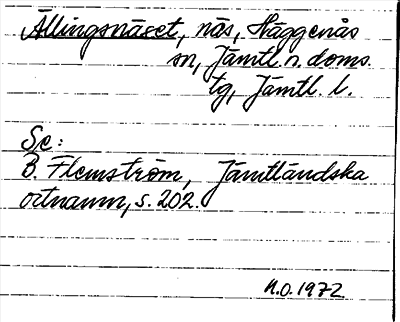 Ällingsnäset, näs, Häggenås
sn, Jämtl. n. doms.
tg, Jämtl. l.
Se:
B. Flemström, Jämtländska
ortnamn, s. 202.
N.O. 1972